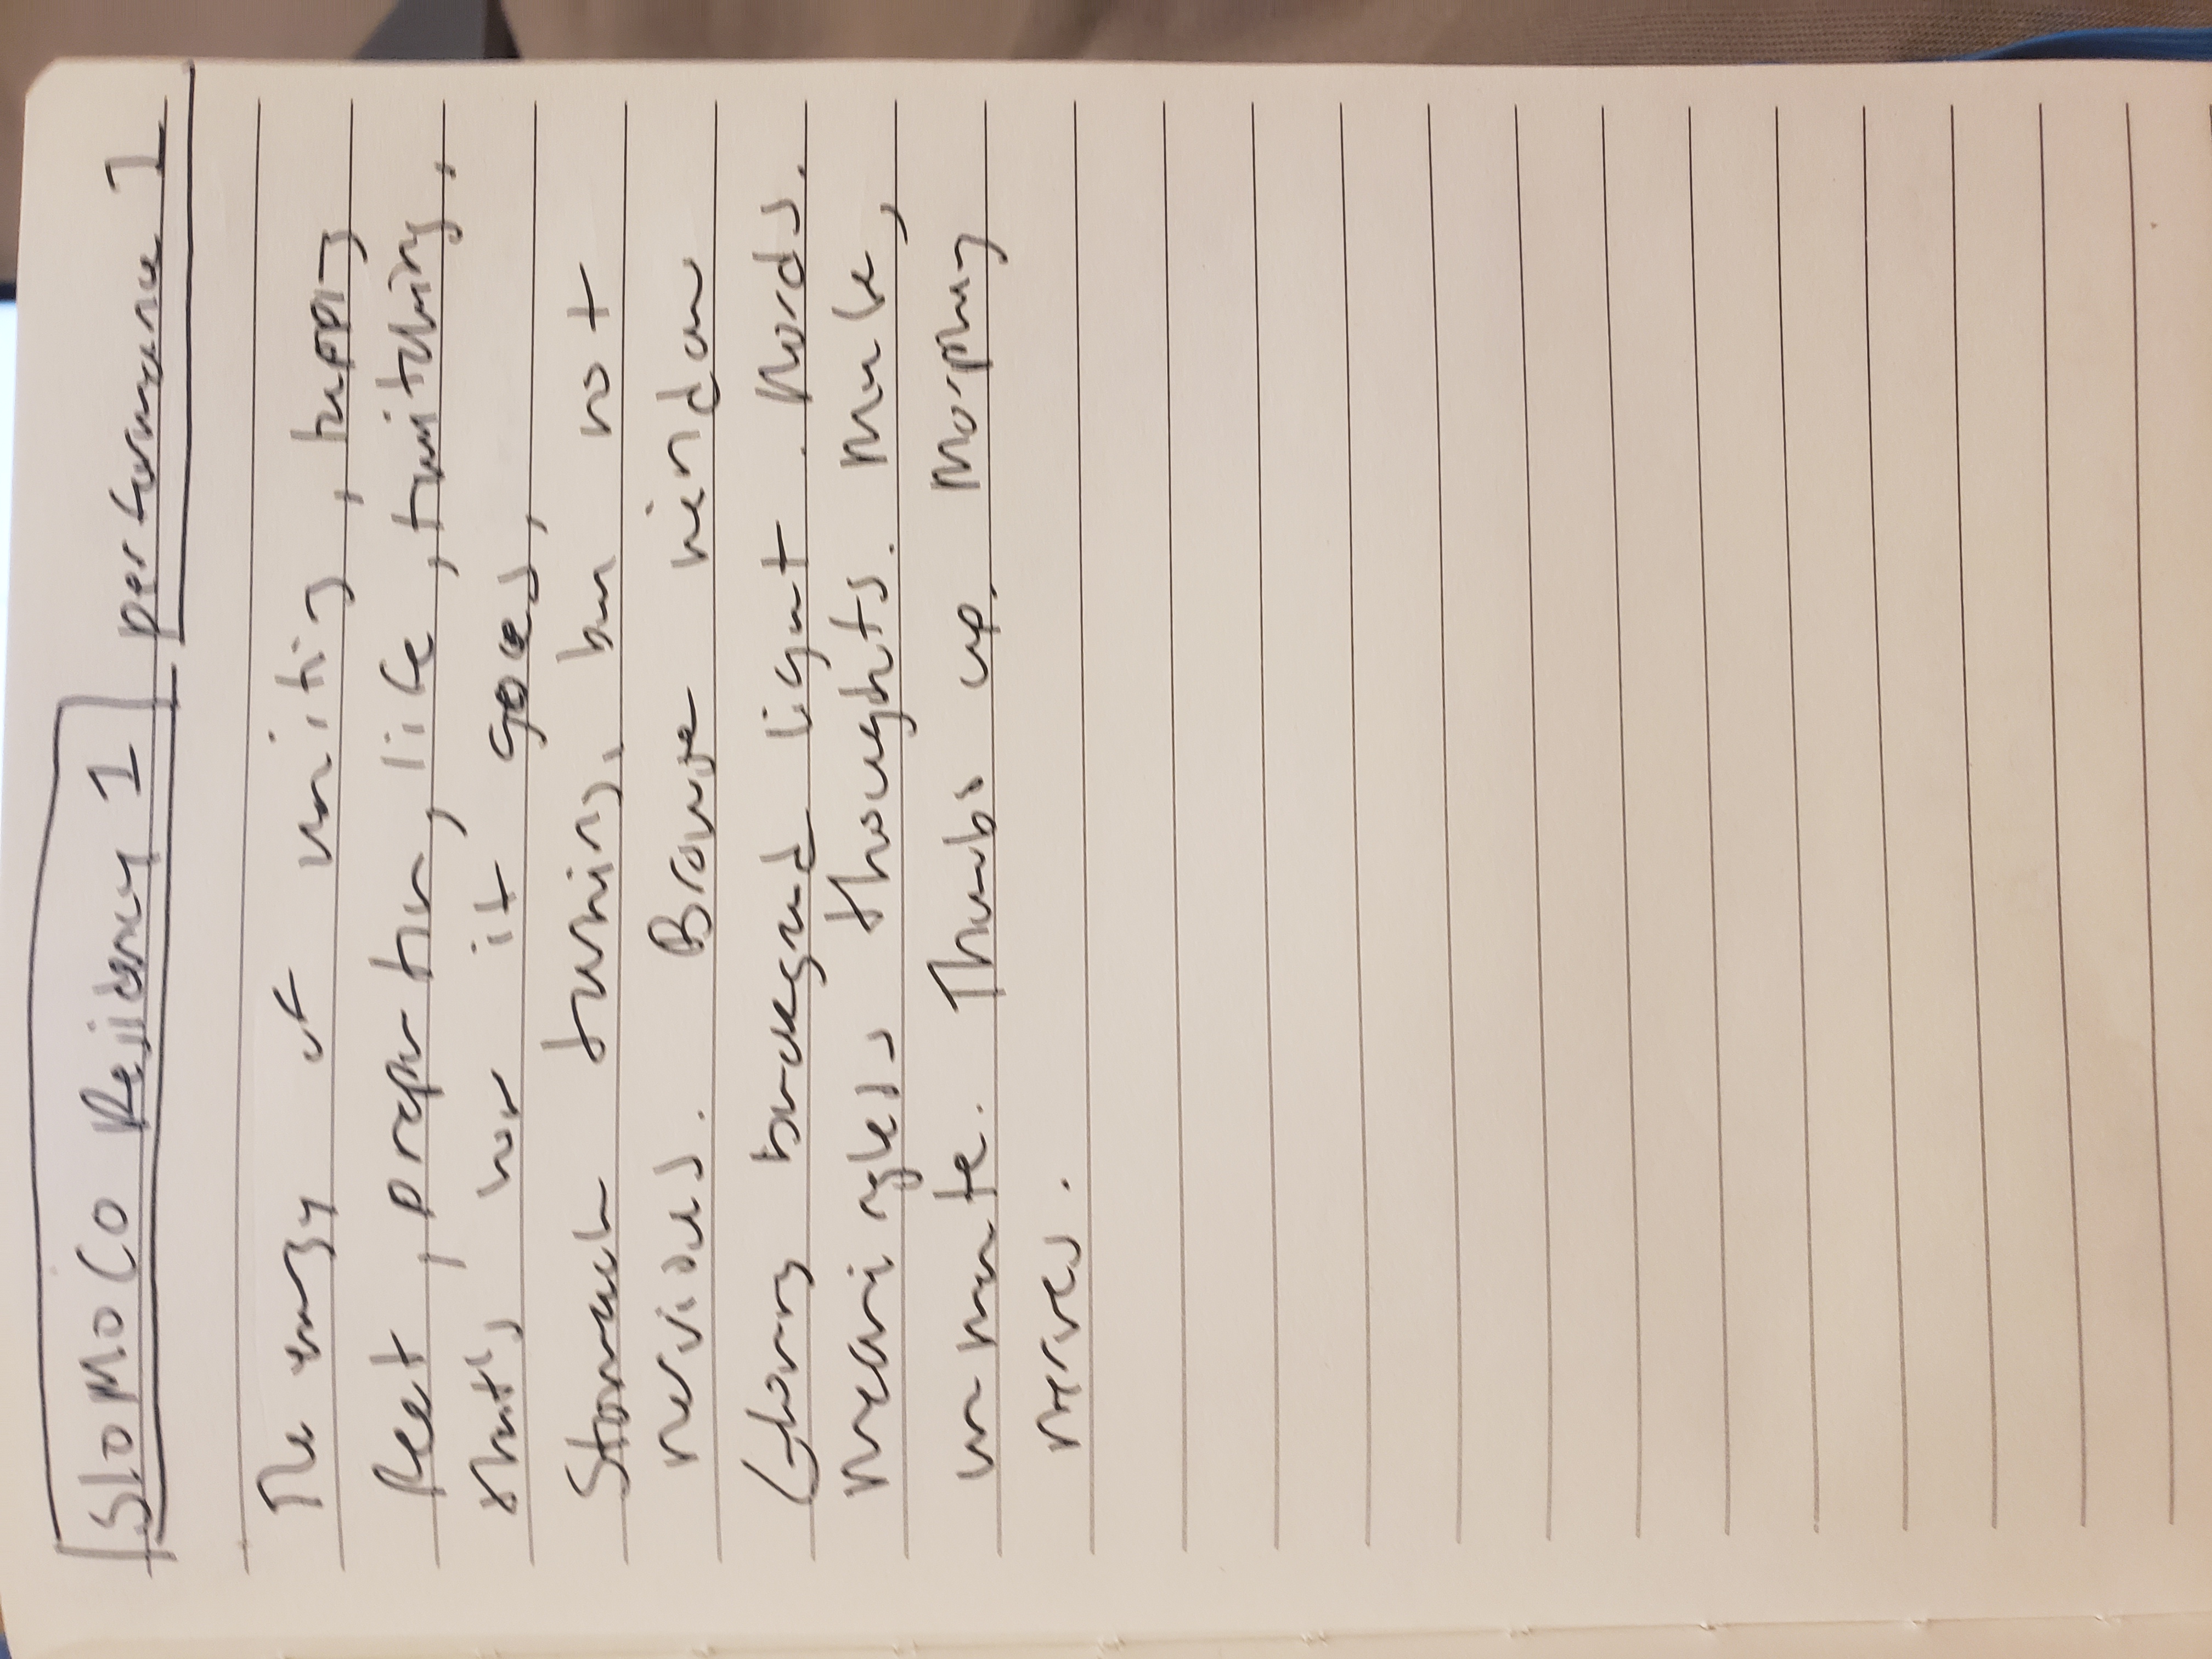 SloMoCo Residency 1 performance 1
The energy of waiting, tapping
feet, proportion, life, twitching,
that's how it goes,
Stomach turning, but not
nervious. Browser window
Glowing background light. Words.
Meaningless thoughts. Mute,
unmute. Thumbs up. Morphing
nerves.